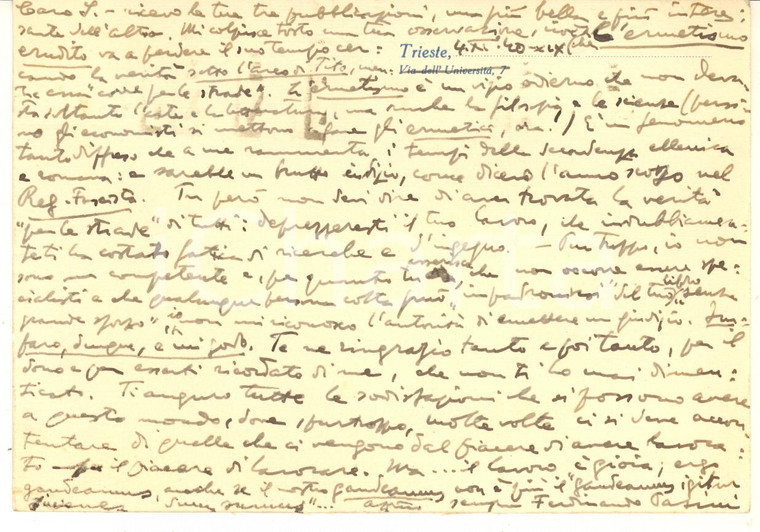 Caro S. - ricevo le tue tre pubblicazioni, una più bella e più interes:
sante dell'altra. Mi colpisce tosto una tua osservazione, che l'ermetismo
erudito va a perdere il suo tempo cer:
Trieste, 4.XI.40-XIX
Via dell'Università, 7
cando la verità sotto l'arco di Tito, men:
tre essa "corre per le strade". L'ermetismo è un vizio odierno che non
soltanto l'arte e la letteratura, ma anche la filosofia e le scienze (persi:
no gli economisti si mettono a fare gli ermetici, ora!) È un fenomeno
tanto diffuso che a me rammenta i tempi della decadenza ellenica
e romana: e sarebbe un brutto indizio, come dicevo l'anno scorso nel
Reg. Fascista. Tu però non devi dire di aver trovata la verità
"per le strade" di tutti: deprezzeresti il tuo lavoro, che indubbiamen:
te ti ha costato fatica di ricerche e d'ingegno. - Purtroppo, io non
sono un competente e, per quanto tu asserisca, che non occorre essere spe:
cialisti e che qualunque persona colta può "impadronirsi del tuo libro senza
grande sforzo" io non mi riconosco l'autorità di emettere un giudizio. Im:
paro, dunque, e mi godo. Te ne ringrazio tanto e poi tanto, per il
dono e per esserti ricordato di me, che non ti ho mai dimen:
ticato. Ti auguro tutte le sodisfazioni che si possono avere
a questo mondo, dove, purtroppo, molte volte ci si deve accon:
tentare di quelle che ci vengono dal piacere di avere lavora:
to il piacere di lavorare. Ma.... il lavoro è gioia, ergo
gaudeamus, anche se il nostro gaudeamus non è più il "gaudeamus igitur
iuvenes dum sumus"... sempre Ferdinando Pasini